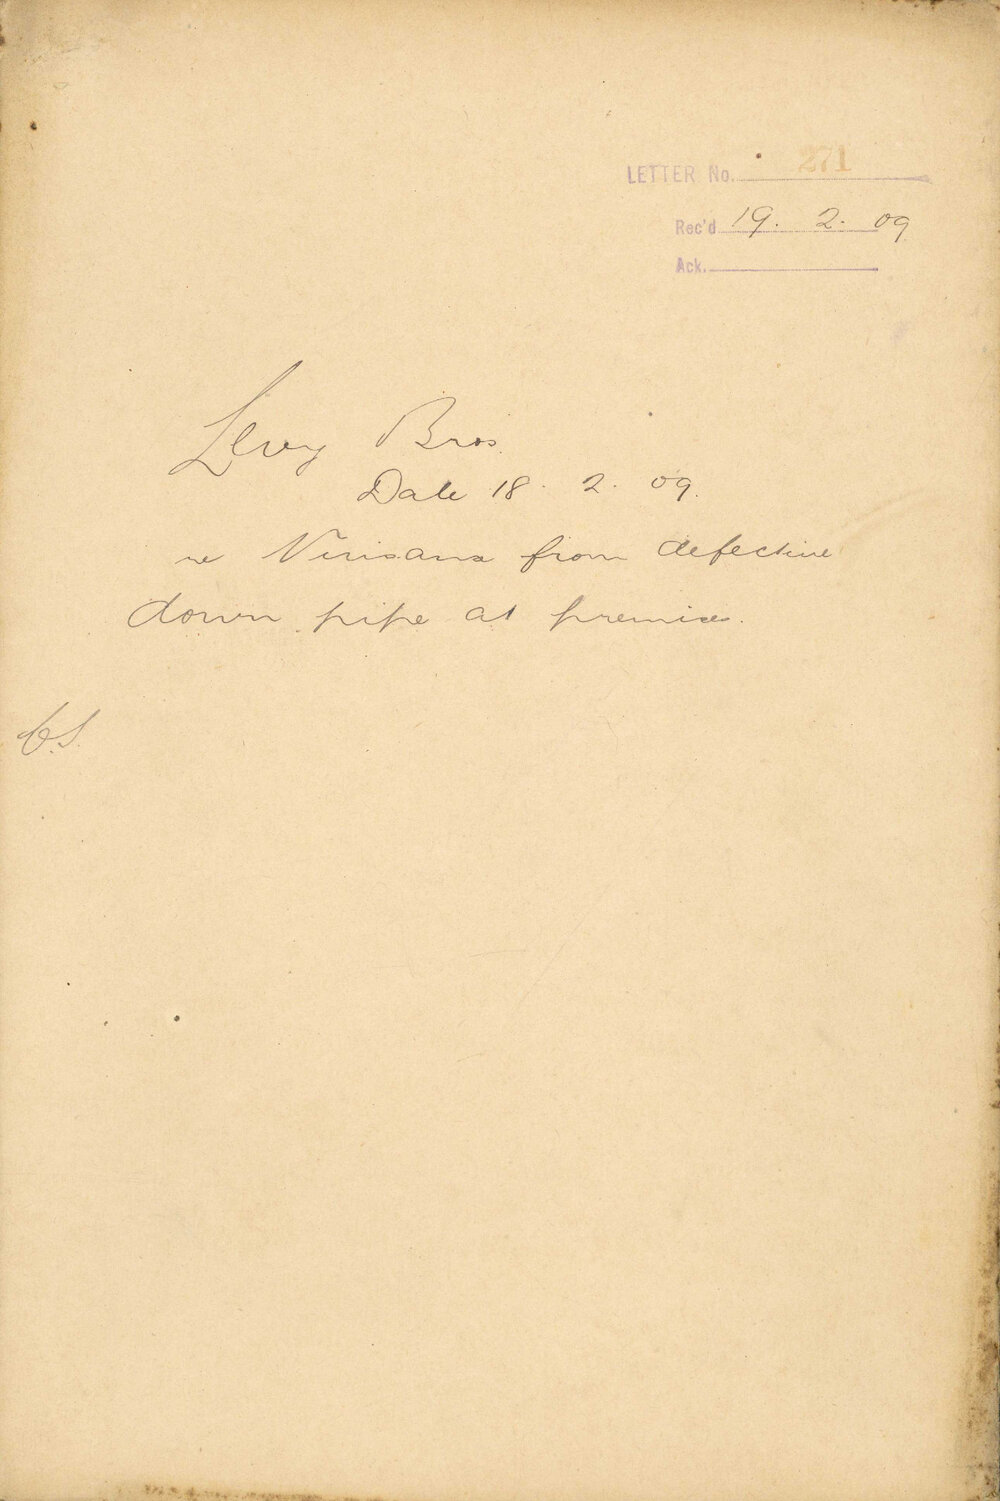 LETTER No. 271
Rec'd 19. 2. 09
Ack.
Levy Bros.
Date 18. 2. 09.
re from defective
down pipe at premises.